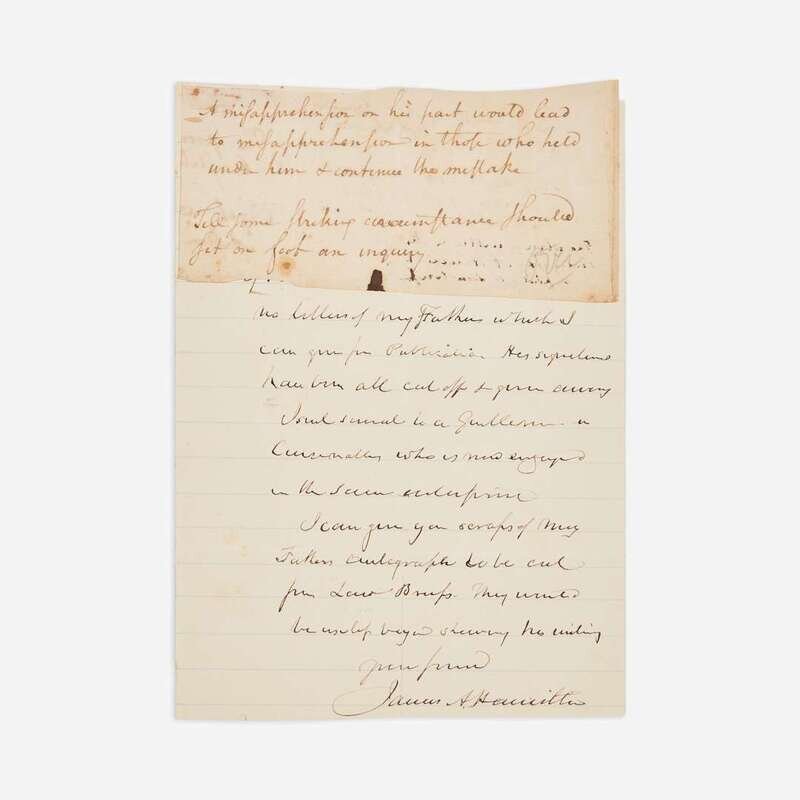 A misapprehension on his part would lead
to misapprehension in those who held
under him & continue the mistake
Till some striking circumstance should
set on foot an inquiry
no letters of my Fathers which I
can give for Publication His signatures
have been all cut off & given away
I sent several to a Gentleman in
who is now engaged
in the same enterprise
I can give you scraps of my
Fathers autograph to be cut
from Law Briefs. They would
be useless beyond shewing his writing
your friend
James A. Hamilton